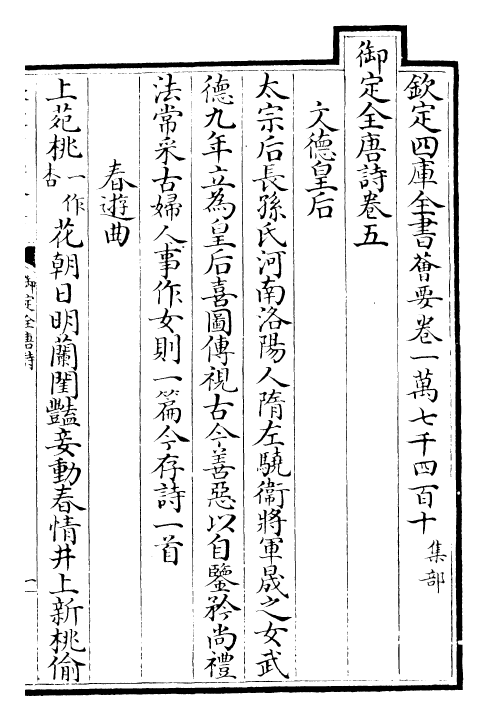 欽定四庫全書薈要卷一萬七千四百十 集部
御定全唐詩卷五
文德皇后
太宗后長孫氏河南洛陽人隋左驍衛將軍晟之女武
德九年立為皇后喜圖傳視古今善惡以自鑒矜尚禮
法常采古婦人事作女則一篇今存詩一首
春遊曲
上苑桃一作杏花朝日明蘭閨豔妾動春情井上新桃偷
御定全唐詩